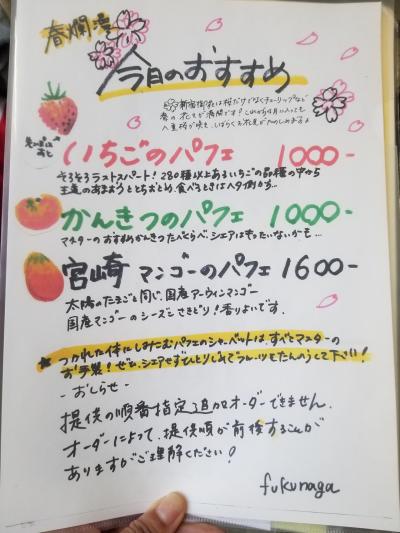 春爛漫
今日のおすすめ
新宿御苑は桜だけでなくチューリップなど
春の花々が満開です！これから4月に入っても
八重桜が咲き、しばらくお花見がたのしめますよ
いちごのパフェ 1000-
そろそろラストスパート！280種以上あるいちごの品種の中から
かんきつのパフェ 1000-
マスターのおすすめかんきつたべくらべ、シェアはもったいないかも…
宮崎マンゴーのパフェ 1600-
太陽のたまごと同じ、国産アーウィンマンゴー
国産マンゴーのシーズンさきどり！香りよいです。
★つかれた体にしみこむパフェのシャーベットは、すべてマスターの
お手製！ぜひ、シェアせずひとりじめでフルーツをたんのうして下さい！
-おしらせ-
提供の順番指定、追加オーダーできません。
オーダーによって、提供順が前後することが
ありますがご理解ください！
fukunaga